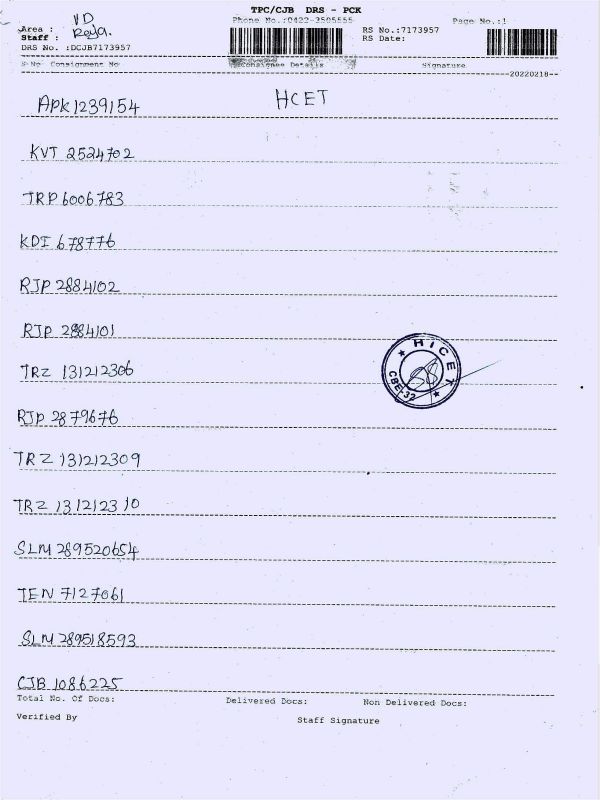 TPC/CJB DRS - PCK
Phone No.:0422-3505555 Page No.:1
Area : VD
Staff : Raja.
RS No.:7173957
RS Date:
DRS No. :DCJB7173957
S No Consignment No Consignee Details Signature
20220218
APK1239154 HCET
KVT 2524702
TRP 6006783
KDI 678776
RJP 2884102
RJP 2884101
TRZ 131212306
HICET
CBE-32
RJP 2879676
TRZ 131212309
TRZ 131212310
SLM 289520654
TEN 7127061
SLM 289518593
CJB 1086225
Total No. Of Docs: Delivered Docs: Non Delivered Docs:
Verified By Staff Signature